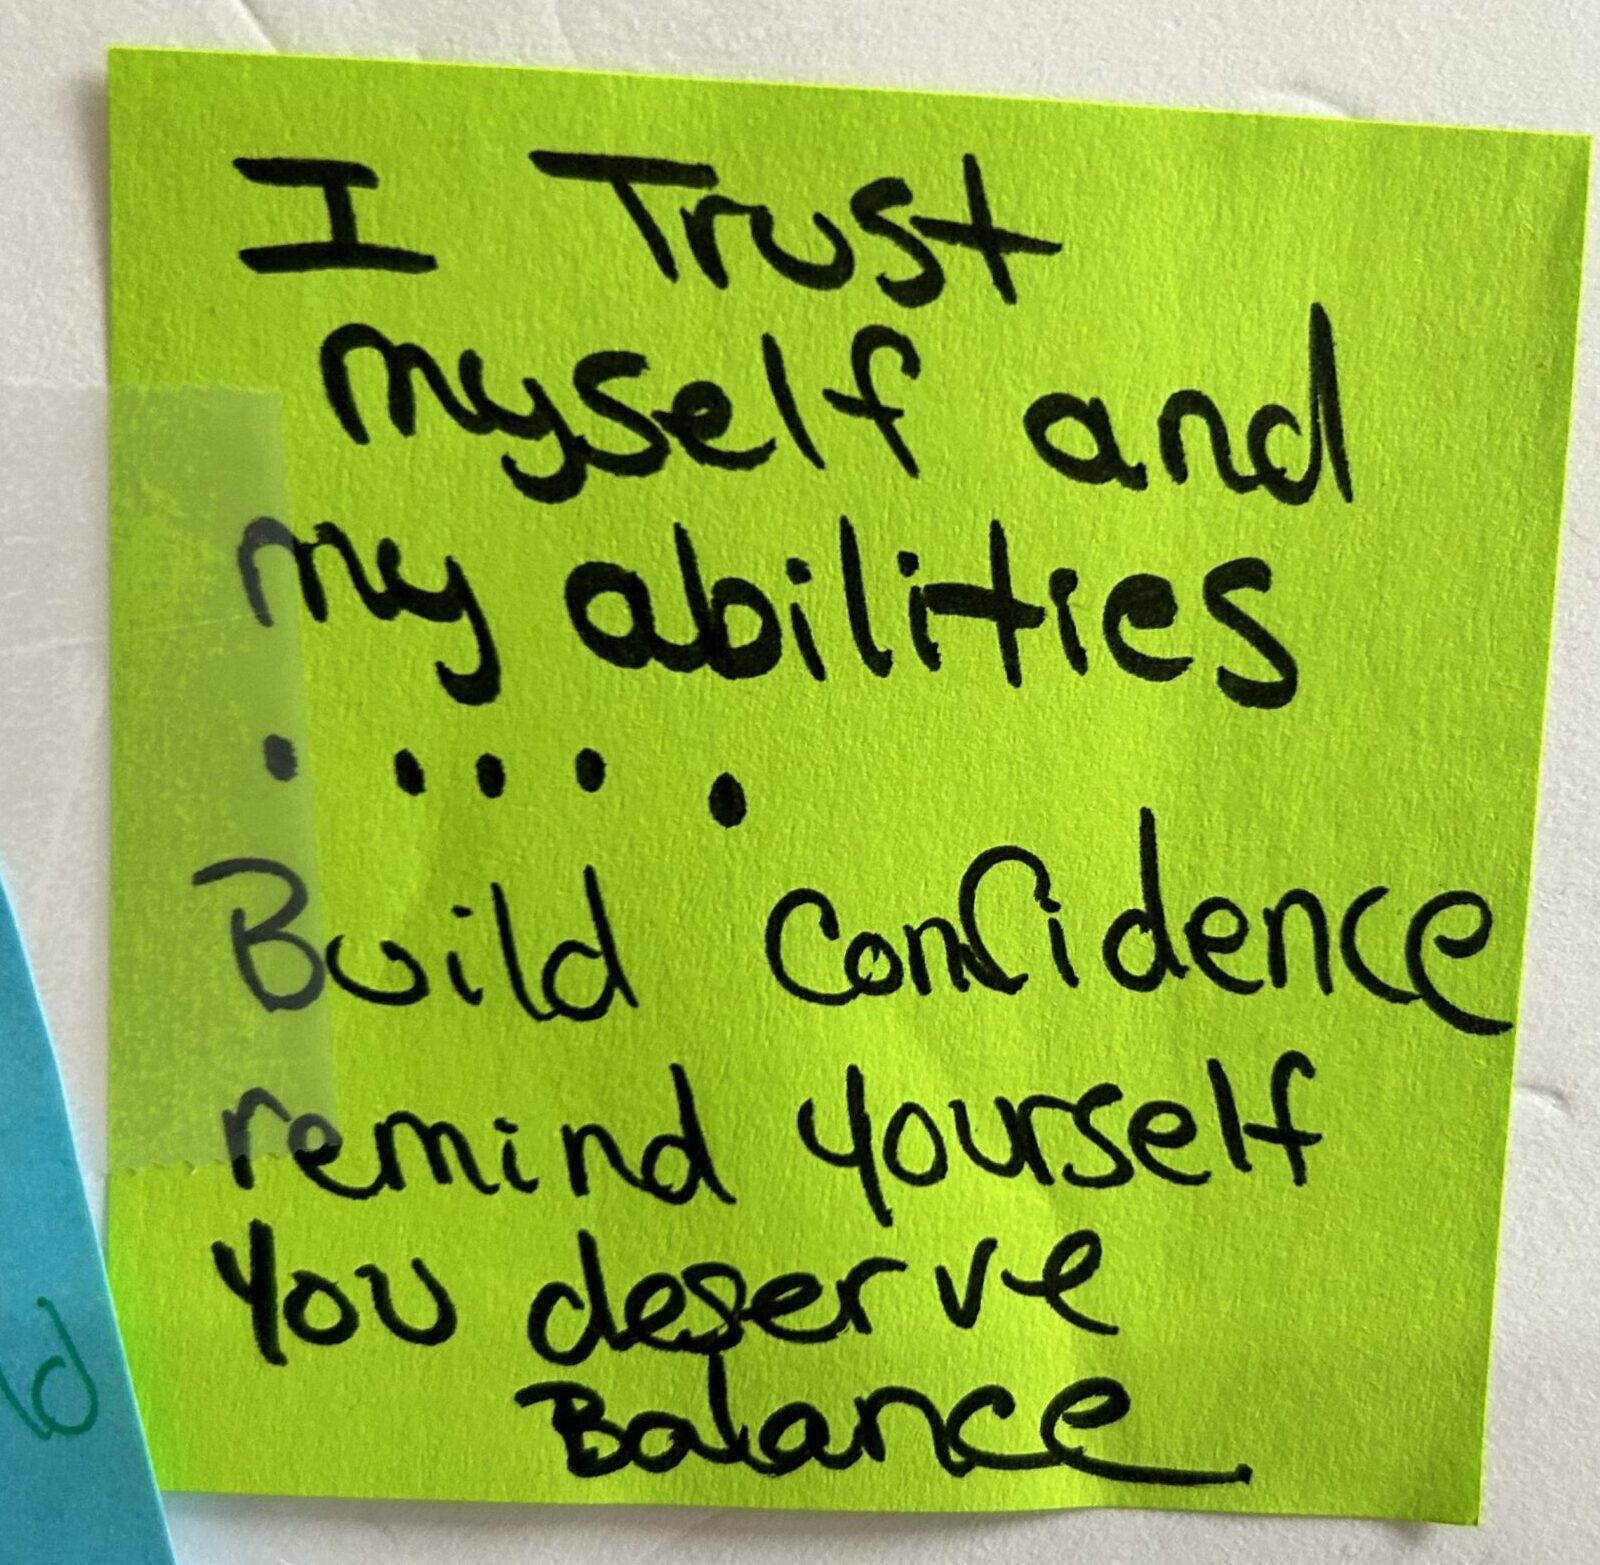 I Trust
myself and
my abilities
. . . . .
Build Confidence
remind yourself
You deserve
Balance